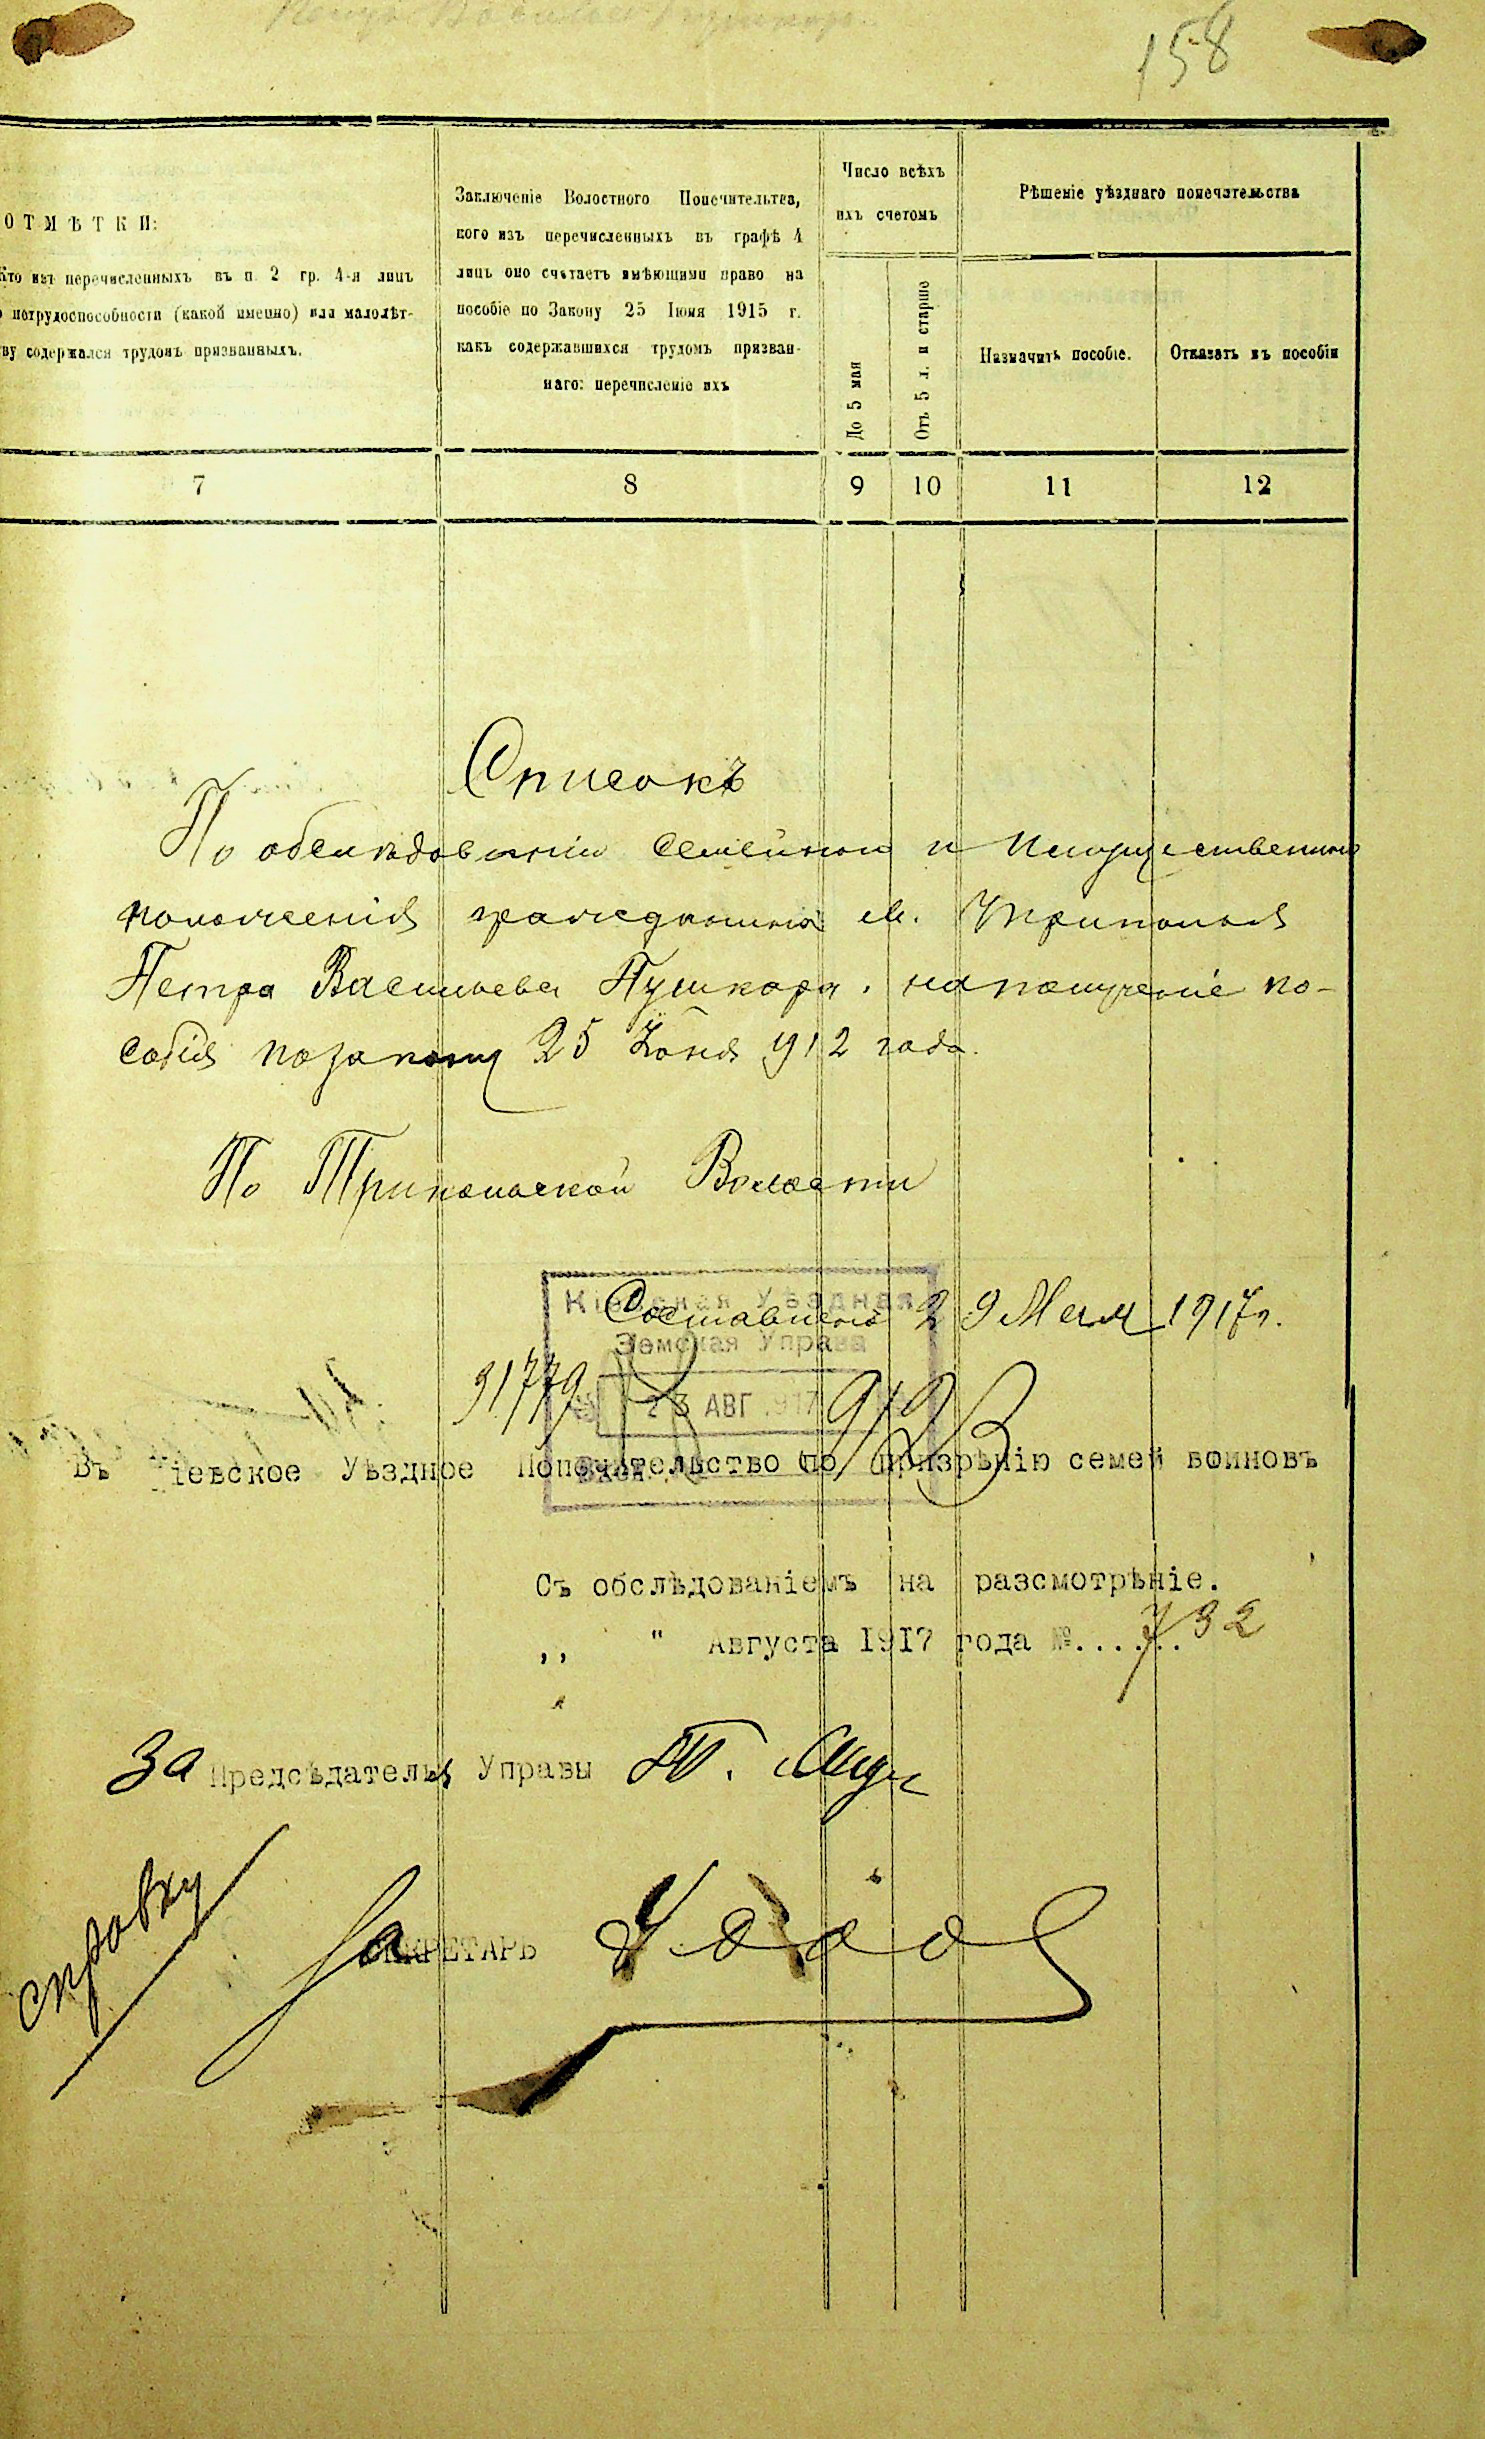 158
ОТМѢТКИ:
Кто изъ перечисленныхъ въ п. 2 гр. 4-я лицъ
нетрудоспособности (какой именно) или малолѣт-
ву содержался трудомъ призванныхъ.
Заключеніе Волостного Попечительтва,
кого изъ перечисленныхъ въ графѣ 4
лицъ оно считаетъ имѣющими право на
пособіе по Закону 25 Іюня 1915 г.
какъ содержавшихся трудомъ призван-
наго: перечисленіе ихъ
Число всѣхъ
ихъ счетомъ
До 5 мая
Отъ 5 л. и старше
Рѣшеніе уѣзднаго попечательства
Назначить пособіе.
Отказать въ пособіи
7 8 9 10 11 12
Списокъ
По обслѣдованію Семейнои и Имущественнои
положенія гражданина м. Триполья
Петра Васильева Пушкаря. на полученіе по-
собія по закону 25 Іюня 1912 года.
По Трипольской Волости
Составленъ 29 Мая 1917 г.
Кіевская Уѣздная
Земская Управа
23 АВГ 1917
31779
Въ Кіевское Уѣздное Попечительство по призрѣнію семей воиновъ
Съ обслѣдованіемъ на разсмотрѣніе.
,, " Августа 1917 года №....... 732
За Предсѣдателя Управы
За СЕКРЕТАРЬ
справку